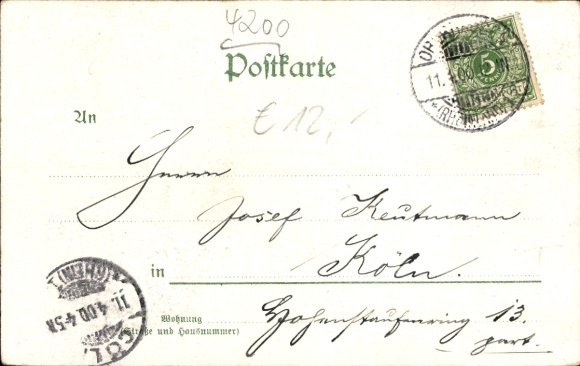 4200
Postkarte
An
€ 12,
Herrn
Josef Keutmann
in Köln.
Wohnung
(Straße und Hausnummer)
Hohenstaufenring 13.
part.
5
11.4.00
(RHEINLAND)
11.4.00.4-5N
CÖLN